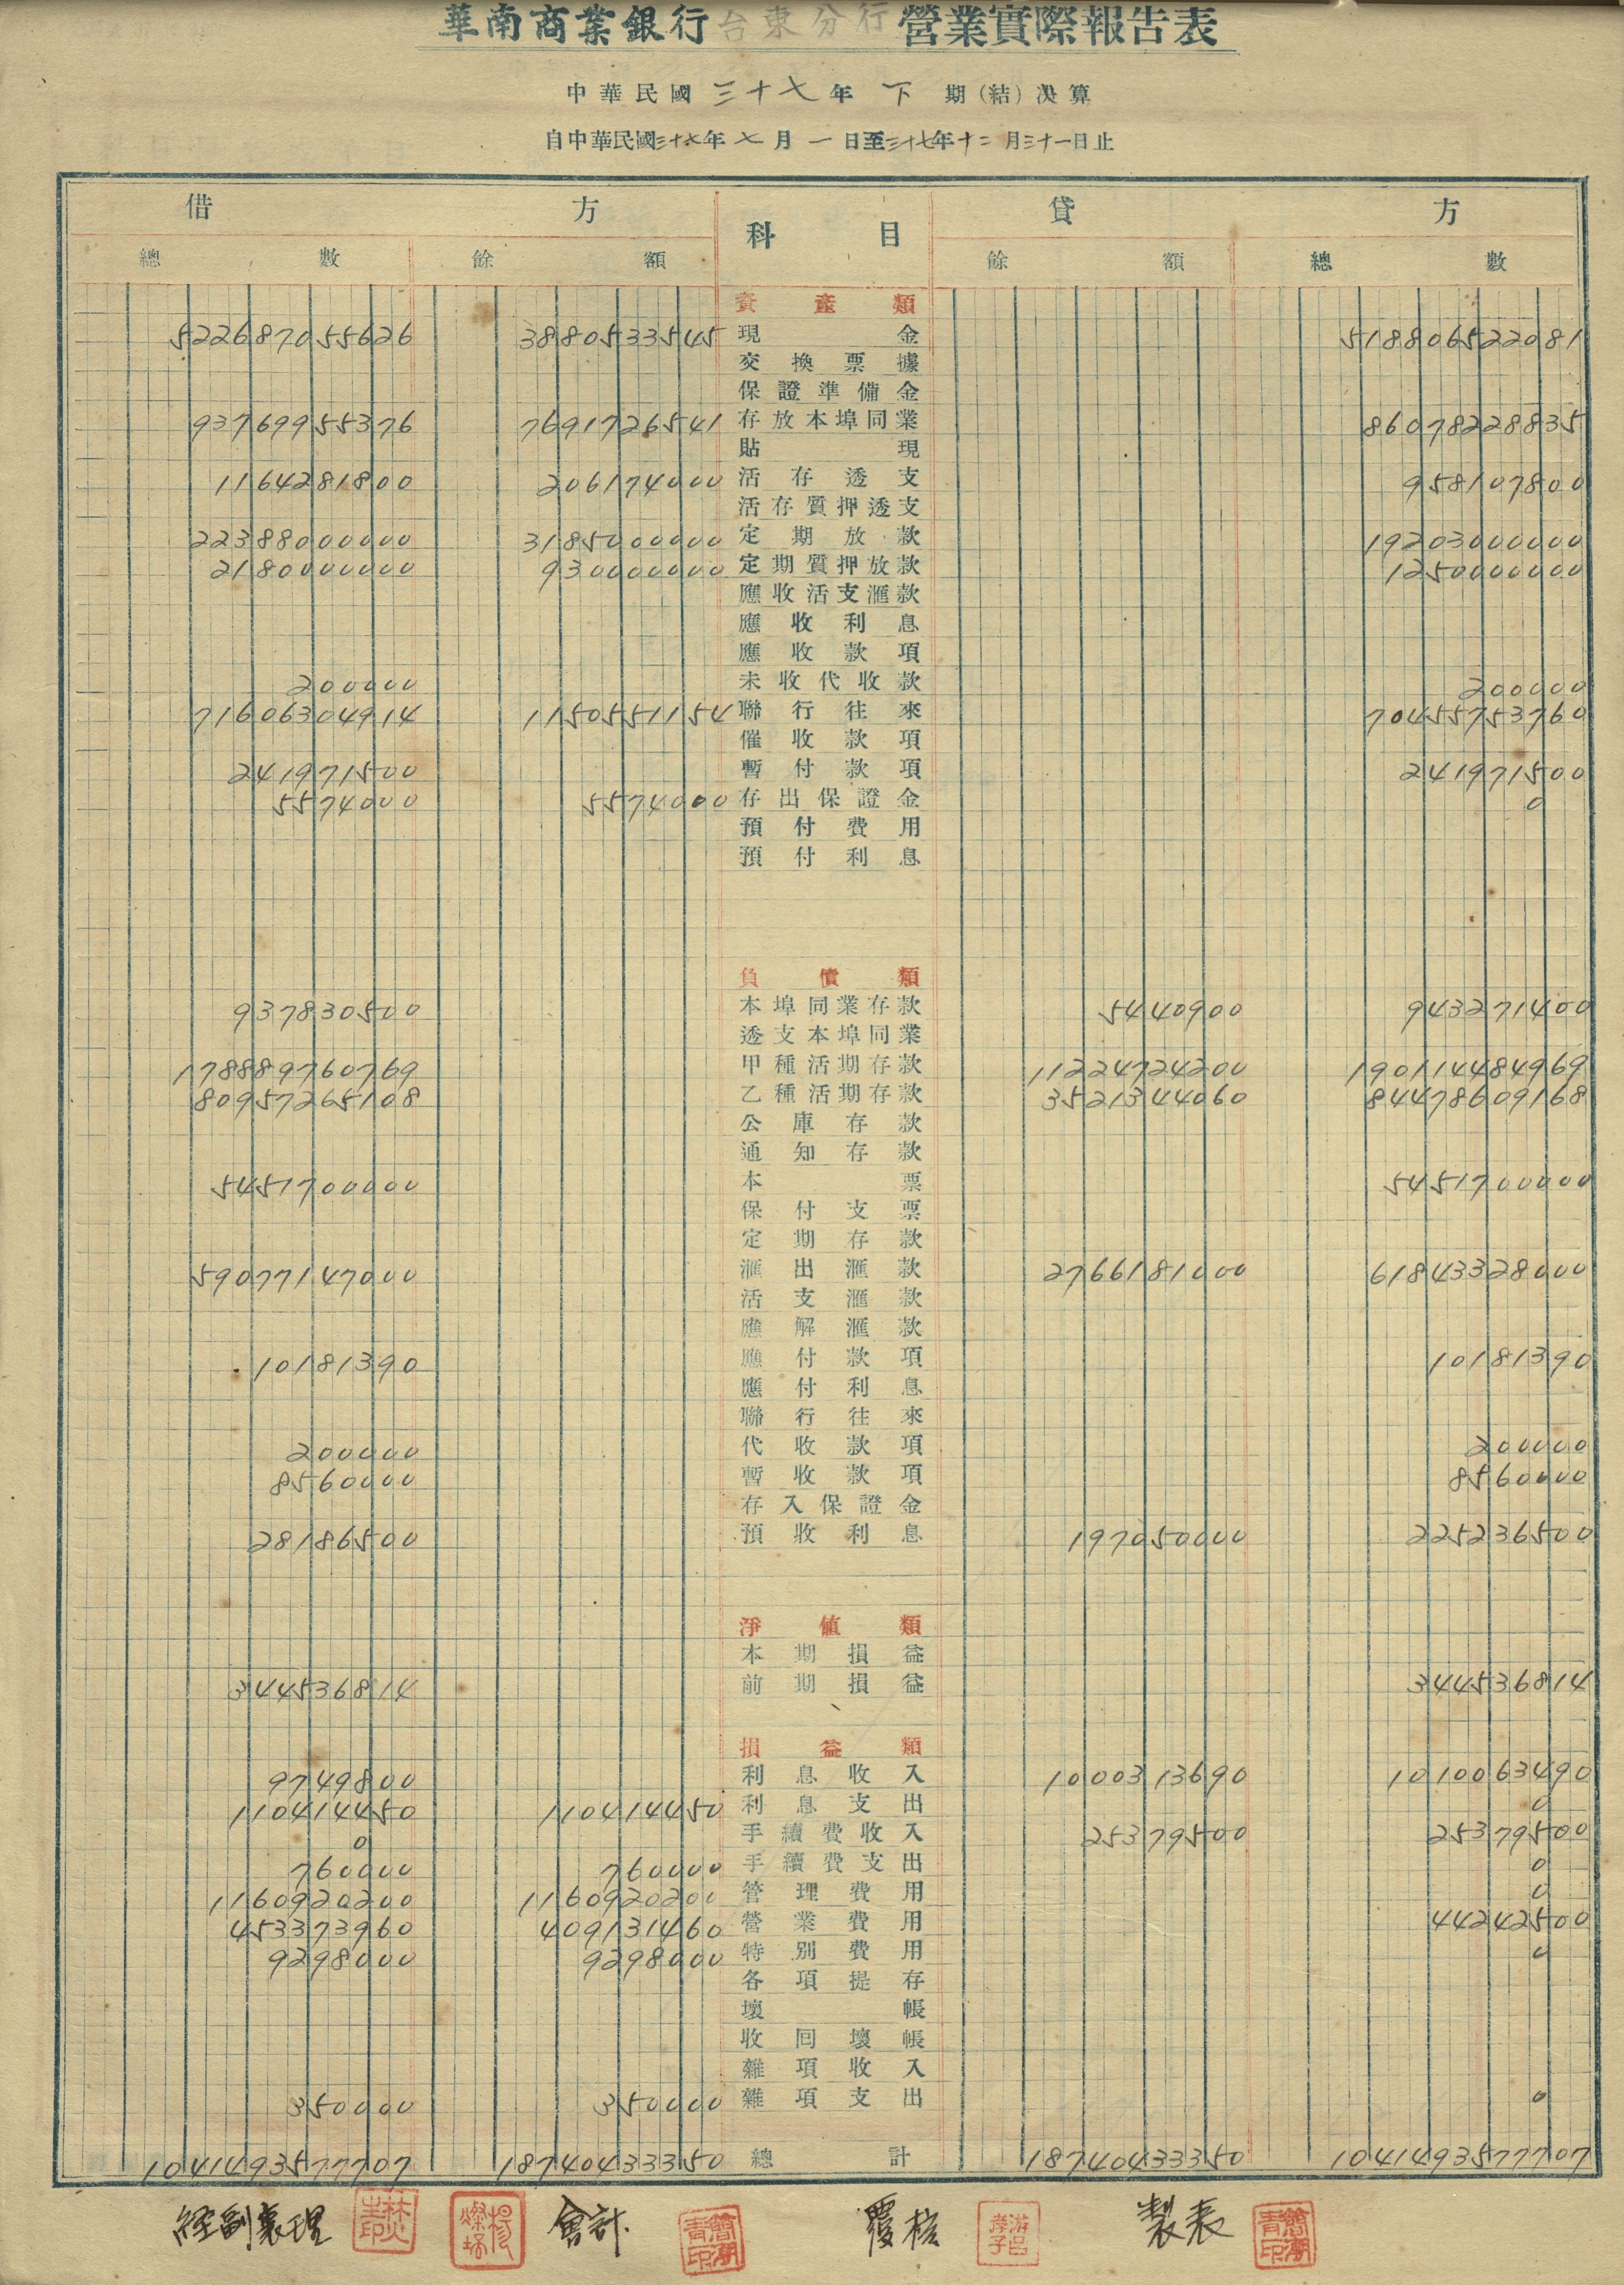 華南商業銀行台東分行營業實際報告表
中華民國三十七年下期(結)決算
自中華民國三十七年七月一日至三十七年十二月三十一日止
借方 科目 貸方
總數 餘額 餘額 總數
資產類
522687055626 3880533545 現金 518806522081
交換票據
保證準備金
93769955376 7691726541 存放本埠同業 86078228835
貼現
1164281800 206174000 活存透支 958107800
活存質押透支
22388000000 3185000000 定期放款 19203000000
2180000000 930000000 定期質押放款 1250000000
應收活支滙款
應收利息
應收款項
200000 未收代收款 200000
71606304914 1150551154 聯行往來 70455753760
催收款項
241971500 暫付款項 241971500
5574000 5574000 存出保證金 0
預付費用
預付利息
負債類
937830500 本埠同業存款 5440900 943271400
透支本埠同業
178889760769 甲種活期存款 11224724200 190114484969
80957265108 乙種活期存款 3521344060 84478609168
公庫存款
通知存款
5451700000 本票 5451700000
保付支票
定期存款
59077147000 滙出滙款 2766181000 61843328000
活支滙款
應解滙款
10181390 應付款項 10181390
應付利息
聯行往來
200000 代收款項 200000
8560000 暫收款項 8560000
存入保證金
28186500 預收利息 197050000 225236500
淨值類
本期損益
344536814 前期損益 344536814
損益類
9749800 利息收入 1000313690 1010063490
110414450 110414450 利息支出 0
0 手續費收入 25379500 25379500
760000 760000 手續費支出 0
1160920200 1160920200 管理費用 0
453373960 409131460 營業費用 44242500
9298000 9298000 特別費用 0
各項提存
壞帳
收回壞帳
雜項收入
350000 350000 雜項支出 0
1041493577707 18740433350 總計 18740433350 1041493577707
經副襄理 會計 覆核 製表